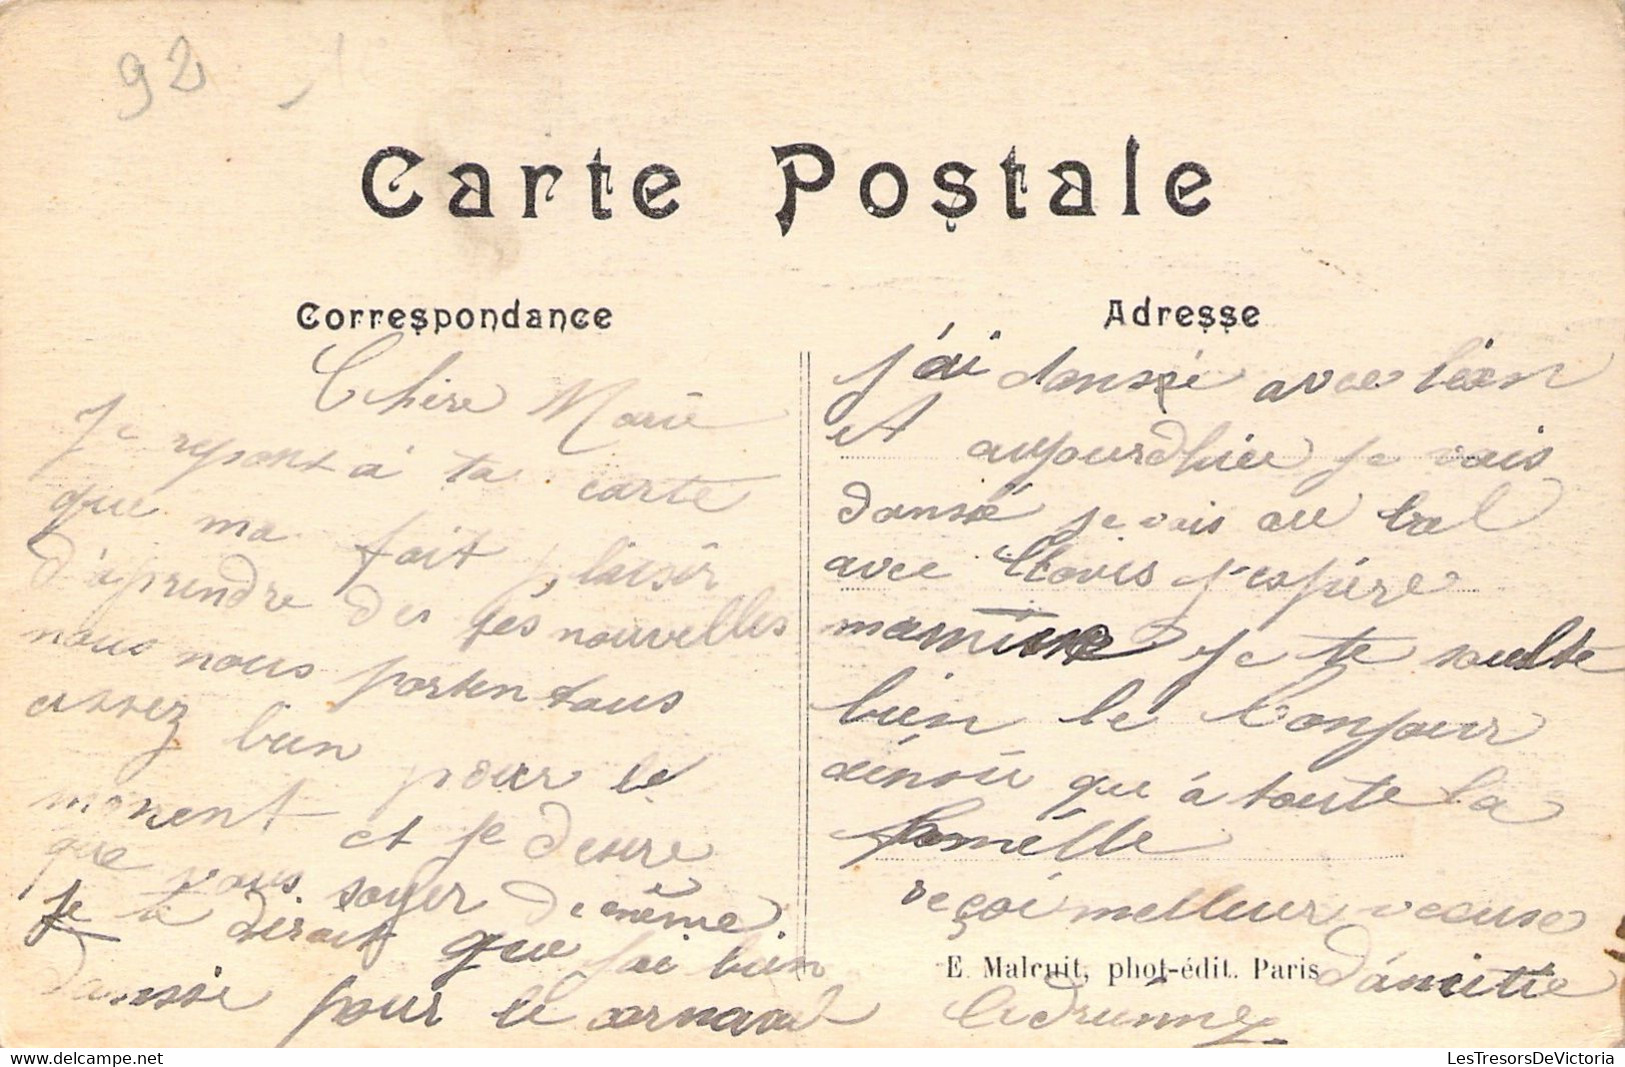 92
Carte Postale
Correspondance
Chère Marie
Je repont a ta carte
que ma fait plaisir
d'àprendre des tes nouvelles
nous nous porten tous
assez bien pour le
moment et je desire
que vous soyer de même
je te dirait que j'ai bien
dansée pour le carnaval
Adresse
j'ai dansée avec léon
et aujourdhui je vais
dansé je vais au bal
avec Clovis j'espère
je te souète
bien le bonjour
ainsie que à toute la
famélle
reçoi melleur
d'amitie
E. Malcuit, phot-édit. Paris
LesTresorsDeVictoria